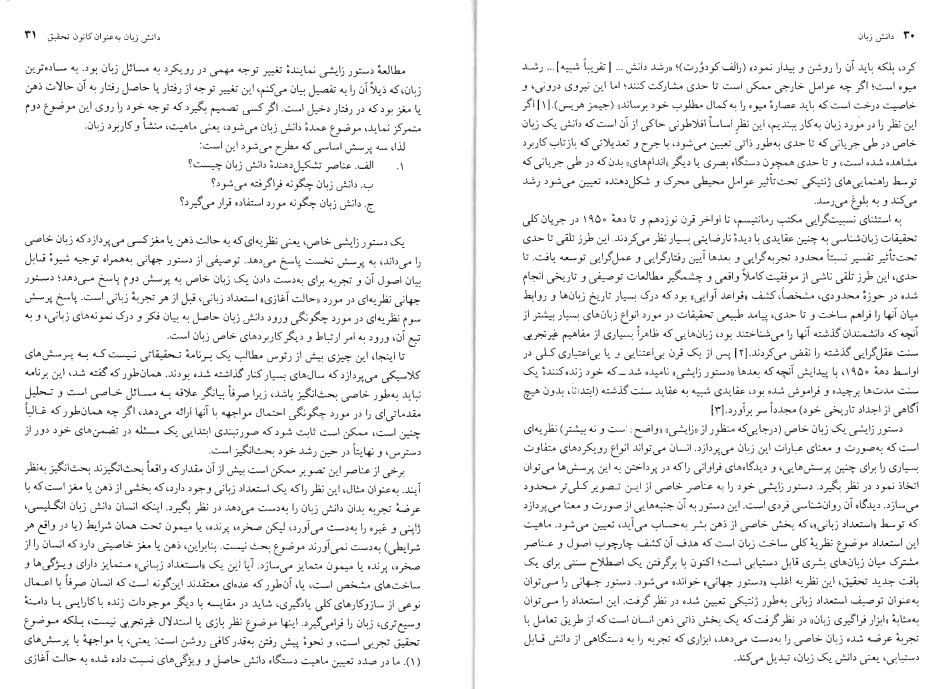 ۳۰ دانش زبان
کرد، بلکه باید آن را روشن و بیدار نمود» (رالف کودوُرت)؛ «رشد دانش ... [تقریباً شبیه] ... رشد
میوه است؛ اگر چه عوامل خارجی ممکن است تا حدی مشارکت کنند؛ اما این نیروی درونی، و
خاصیت درخت است که باید عصارهٔ میوه را به کمال مطلوب خود برساند» (جیمز هریس).[۱] اگر
این نظر را در مورد زبان به‌کار ببندیم، این نظرِ اساساً افلاطونی حاکی از آن است که دانش یک زبان
خاص در طی جریانی که تا حدی به‌طور ذاتی تعیین می‌شود، با جرح و تعدیلاتی که بازتاب کاربرد
مشاهده شده است، و تا حدی همچون دستگاه بصری یا دیگر «اندام‌های» بدن که در طی جریانی که
توسط راهنمایی‌های ژنتیکی تحت‌تأثیر عوامل محیطی محرک و شکل‌دهنده تعیین می‌شود رشد
می‌کند و به بلوغ می‌رسد.
به استثنای نسبیت‌گرایی مکتب رمانتیسم، تا اواخر قرن نوزدهم و تا دههٔ ۱۹۵۰ در جریان کلی
تحقیقات زبان‌شناسی به چنین عقایدی با دیدهٔ نارضایتی بسیار نظر می‌کردند. این طرز تلقی تا حدی
تحت‌تأثیر تفسیر نسبتاً محدود تجربه‌گرایی و بعدها آیین رفتارگرایی و عمل‌گرایی توسعه یافت. تا
حدی، این طرز تلقی ناشی از موفقیت کاملاً واقعی و چشمگیر مطالعات توصیفی و تاریخی انجام
شده در حوزهٔ محدودی، مشخصاً، کشف «قواعد آوایی» بود که درک بسیار تاریخ زبان‌ها و روابط
میان آنها را فراهم ساخت و تا حدی، پیامد طبیعی تحقیقات در مورد انواع زبان‌های بسیار بیشتر از
آنچه که دانشمندان گذشته آنها را می‌شناختند بود، زبان‌هایی که ظاهراً بسیاری از مفاهیم غیرتجربی
سنت عقل‌گرایی گذشته را نقض می‌کردند.[۲] پس از یک قرن بی‌اعتنایی و یا بی‌اعتباری کلی در
اواسط دههٔ ۱۹۵۰، با پیدایش آنچه که بعدها «دستور زایشی» نامیده شد ـ که خود زنده‌کنندهٔ یک
سنت مدت‌ها برچیده و فراموش شده بود، عقایدی شبیه به عقاید سنت گذشته (ابتدائاً، بدون هیچ
آگاهی از اجداد تاریخی خود) مجدداً سر برآورد.[۳]
دستور زایشی یک زبان خاص (درجایی‌که منظور از «زایشی»، «واضح» است و نه بیشتر) نظریه‌ای
است که به‌صورت و معنای عبارات این زبان می‌پردازد. انسان می‌تواند انواع رویکردهای متفاوت
بسیاری را برای چنین پرسش‌هایی، و دیدگاه‌های فراوانی را که در پرداختن به این پرسش‌ها می‌توان
اتخاذ نمود در نظر بگیرد. دستور زایشی خود را به عناصر خاصی از این تصویر کلی‌تر محدود
می‌سازد. دیدگاه آن روان‌شناسی فردی است. این دستور به آن جنبه‌هایی از صورت و معنا می‌پردازد
که توسط «استعداد زبانی»، که بخش خاصی از ذهن بشر به‌حساب می‌آید، تعیین می‌شود. ماهیت
این استعداد موضوع نظریهٔ کلی ساخت زبان است که هدف آن کشف چارچوب اصول و عناصر
مشترک میان زبان‌های بشری قابل دستیابی است؛ اکنون با برگرفتن یک اصطلاح سنتی برای یک
بافت جدید تحقیق، این نظریه اغلب «دستور جهانی» خوانده می‌شود. دستور جهانی را می‌توان
به‌عنوان توصیف استعداد زبانی به‌طور ژنتیکی تعیین شده در نظر گرفت. این استعداد را می‌توان
به‌مثابهٔ «ابزار فراگیری زبان» در نظر گرفت که یک بخش ذاتی ذهن انسان است که از طریق تعامل با
تجربهٔ عرضه شده زبان خاصی را به‌دست می‌دهد، ابزاری که تجربه را به دستگاهی از دانش قابل
دستیابی، یعنی دانش یک زبان، تبدیل می‌کند.
دانش زبان به‌عنوان کانون تحقیق ۳۱
مطالعهٔ دستور زایشی نمایندهٔ تغییر توجه مهمی در رویکرد به مسائل زبان بود. به ساده‌ترین
زبان، که ذیلاً آن را به تفصیل بیان می‌کنم، این تغییر توجه از رفتار یا حاصل رفتار به آن حالات ذهن
یا مغز بود که در رفتار دخیل است. اگر کسی تصمیم بگیرد که توجه خود را روی این موضوع دوم
متمرکز نماید، موضوع عمدهٔ دانش زبان می‌شود، یعنی ماهیت، منشأ و کاربرد زبان.
لذا، سه پرسش اساسی که مطرح می‌شود این است:
۱. الف. عناصر تشکیل‌دهندهٔ دانش زبان چیست؟
ب. دانش زبان چگونه فراگرفته می‌شود؟
ج. دانش زبان چگونه مورد استفاده قرار می‌گیرد؟
یک دستور زایشی خاص، یعنی نظریه‌ای که به حالت ذهن یا مغز کسی می‌پردازد که زبان خاصی
را می‌داند، به پرسش نخست پاسخ می‌دهد. توصیفی از دستور جهانی به‌همراه توجیه شیوهٔ قابل
بیان اصول آن و تجربه برای به‌دست دادن یک زبان خاص به پرسش دوم پاسخ می‌دهد؛ دستور
جهانی نظریه‌ای در مورد «حالت آغازی» استعداد زبانی، قبل از هر تجربهٔ زبانی است. پاسخ پرسش
سوم نظریه‌ای در مورد چگونگی ورود دانش زبان حاصل به بیان فکر و درک نمونه‌های زبانی، و به
تبع آن، ورود به امر ارتباط و دیگر کاربردهای خاص زبان است.
تا اینجا، این چیزی بیش از رئوس مطالب یک برنامهٔ تحقیقاتی نیست که به پرسش‌های
کلاسیکی می‌پردازد که سال‌های بسیار کنار گذاشته شده بودند. همان‌طور که گفته شد، این برنامه
نباید به‌طور خاصی بحث‌انگیز باشد، زیرا صرفاً بیانگر علاقه به مسائل خاصی است و تحلیل
مقدماتی‌ای را در مورد چگونگی احتمال مواجهه با آنها ارائه می‌دهد، اگر چه همان‌طور که غالباً
چنین است، ممکن است ثابت شود که صورتبندی ابتدایی یک مسئله در تضمن‌های خود دور از
دسترس، و نهایتاً در حین رشد خود بحث‌انگیز است.
برخی از عناصر این تصویر ممکن است بیش از آن مقدار که واقعاً بحث‌انگیزند بحث‌انگیز به‌نظر
آیند. به‌عنوان مثال، این نظر را که یک استعداد زبانی وجود دارد، که بخشی از ذهن یا مغز است که با
عرضهٔ تجربه بدان دانش زبان را به‌دست می‌دهد در نظر بگیرد. اینکه انسان دانش زبان انگلیسی،
ژاپنی و غیره را به‌دست می‌آورد، لیکن صخره، پرنده، یا میمون تحت همان شرایط (یا در واقع هر
شرایطی) به‌دست نمی‌آورند موضوع بحث نیست. بنابراین، ذهن یا مغز خاصیتی دارد که انسان را از
صخره، پرنده یا میمون متمایز می‌سازد. آیا این یک «استعداد زبانی» متمایز دارای ویژگی‌ها و
ساخت‌های مشخص است، یا، آن‌طور که عده‌ای معتقدند این‌گونه است که انسان صرفاً با اعمال
نوعی از سازوکارهای کلی یادگیری، شاید در مقایسه با دیگر موجودات زنده با کارایی یا دامنهٔ
وسیع‌تری، زبان را فرامی‌گیرد. اینها موضوع نظر بازی یا استدلال غیرتجربی نیست، بلکه موضوع
تحقیق تجربی است، و نحوهٔ پیش رفتن به‌قدر کافی روشن است: یعنی، با مواجههٔ با پرسش‌های
(۱). ما در صدد تعیین ماهیت دستگاه دانش حاصل و ویژگی‌های نسبت داده شده به حالت آغازی